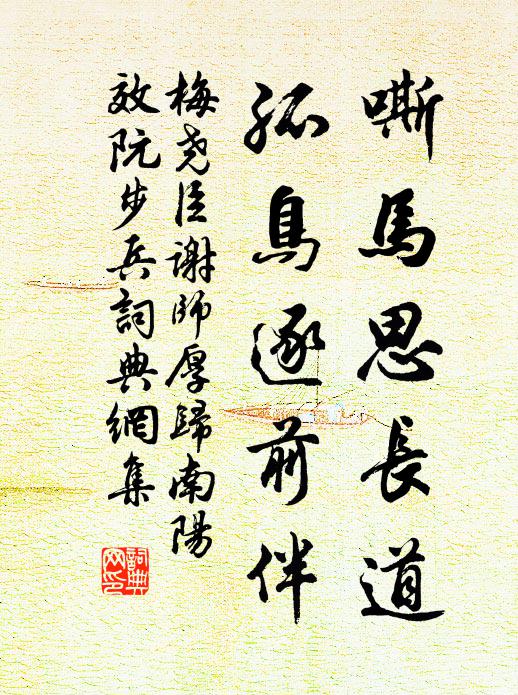 嘶馬思長道
孤鳥逐前伴
梅堯臣謝師厚歸南陽
效阮步兵詞典網集
詞典
网印